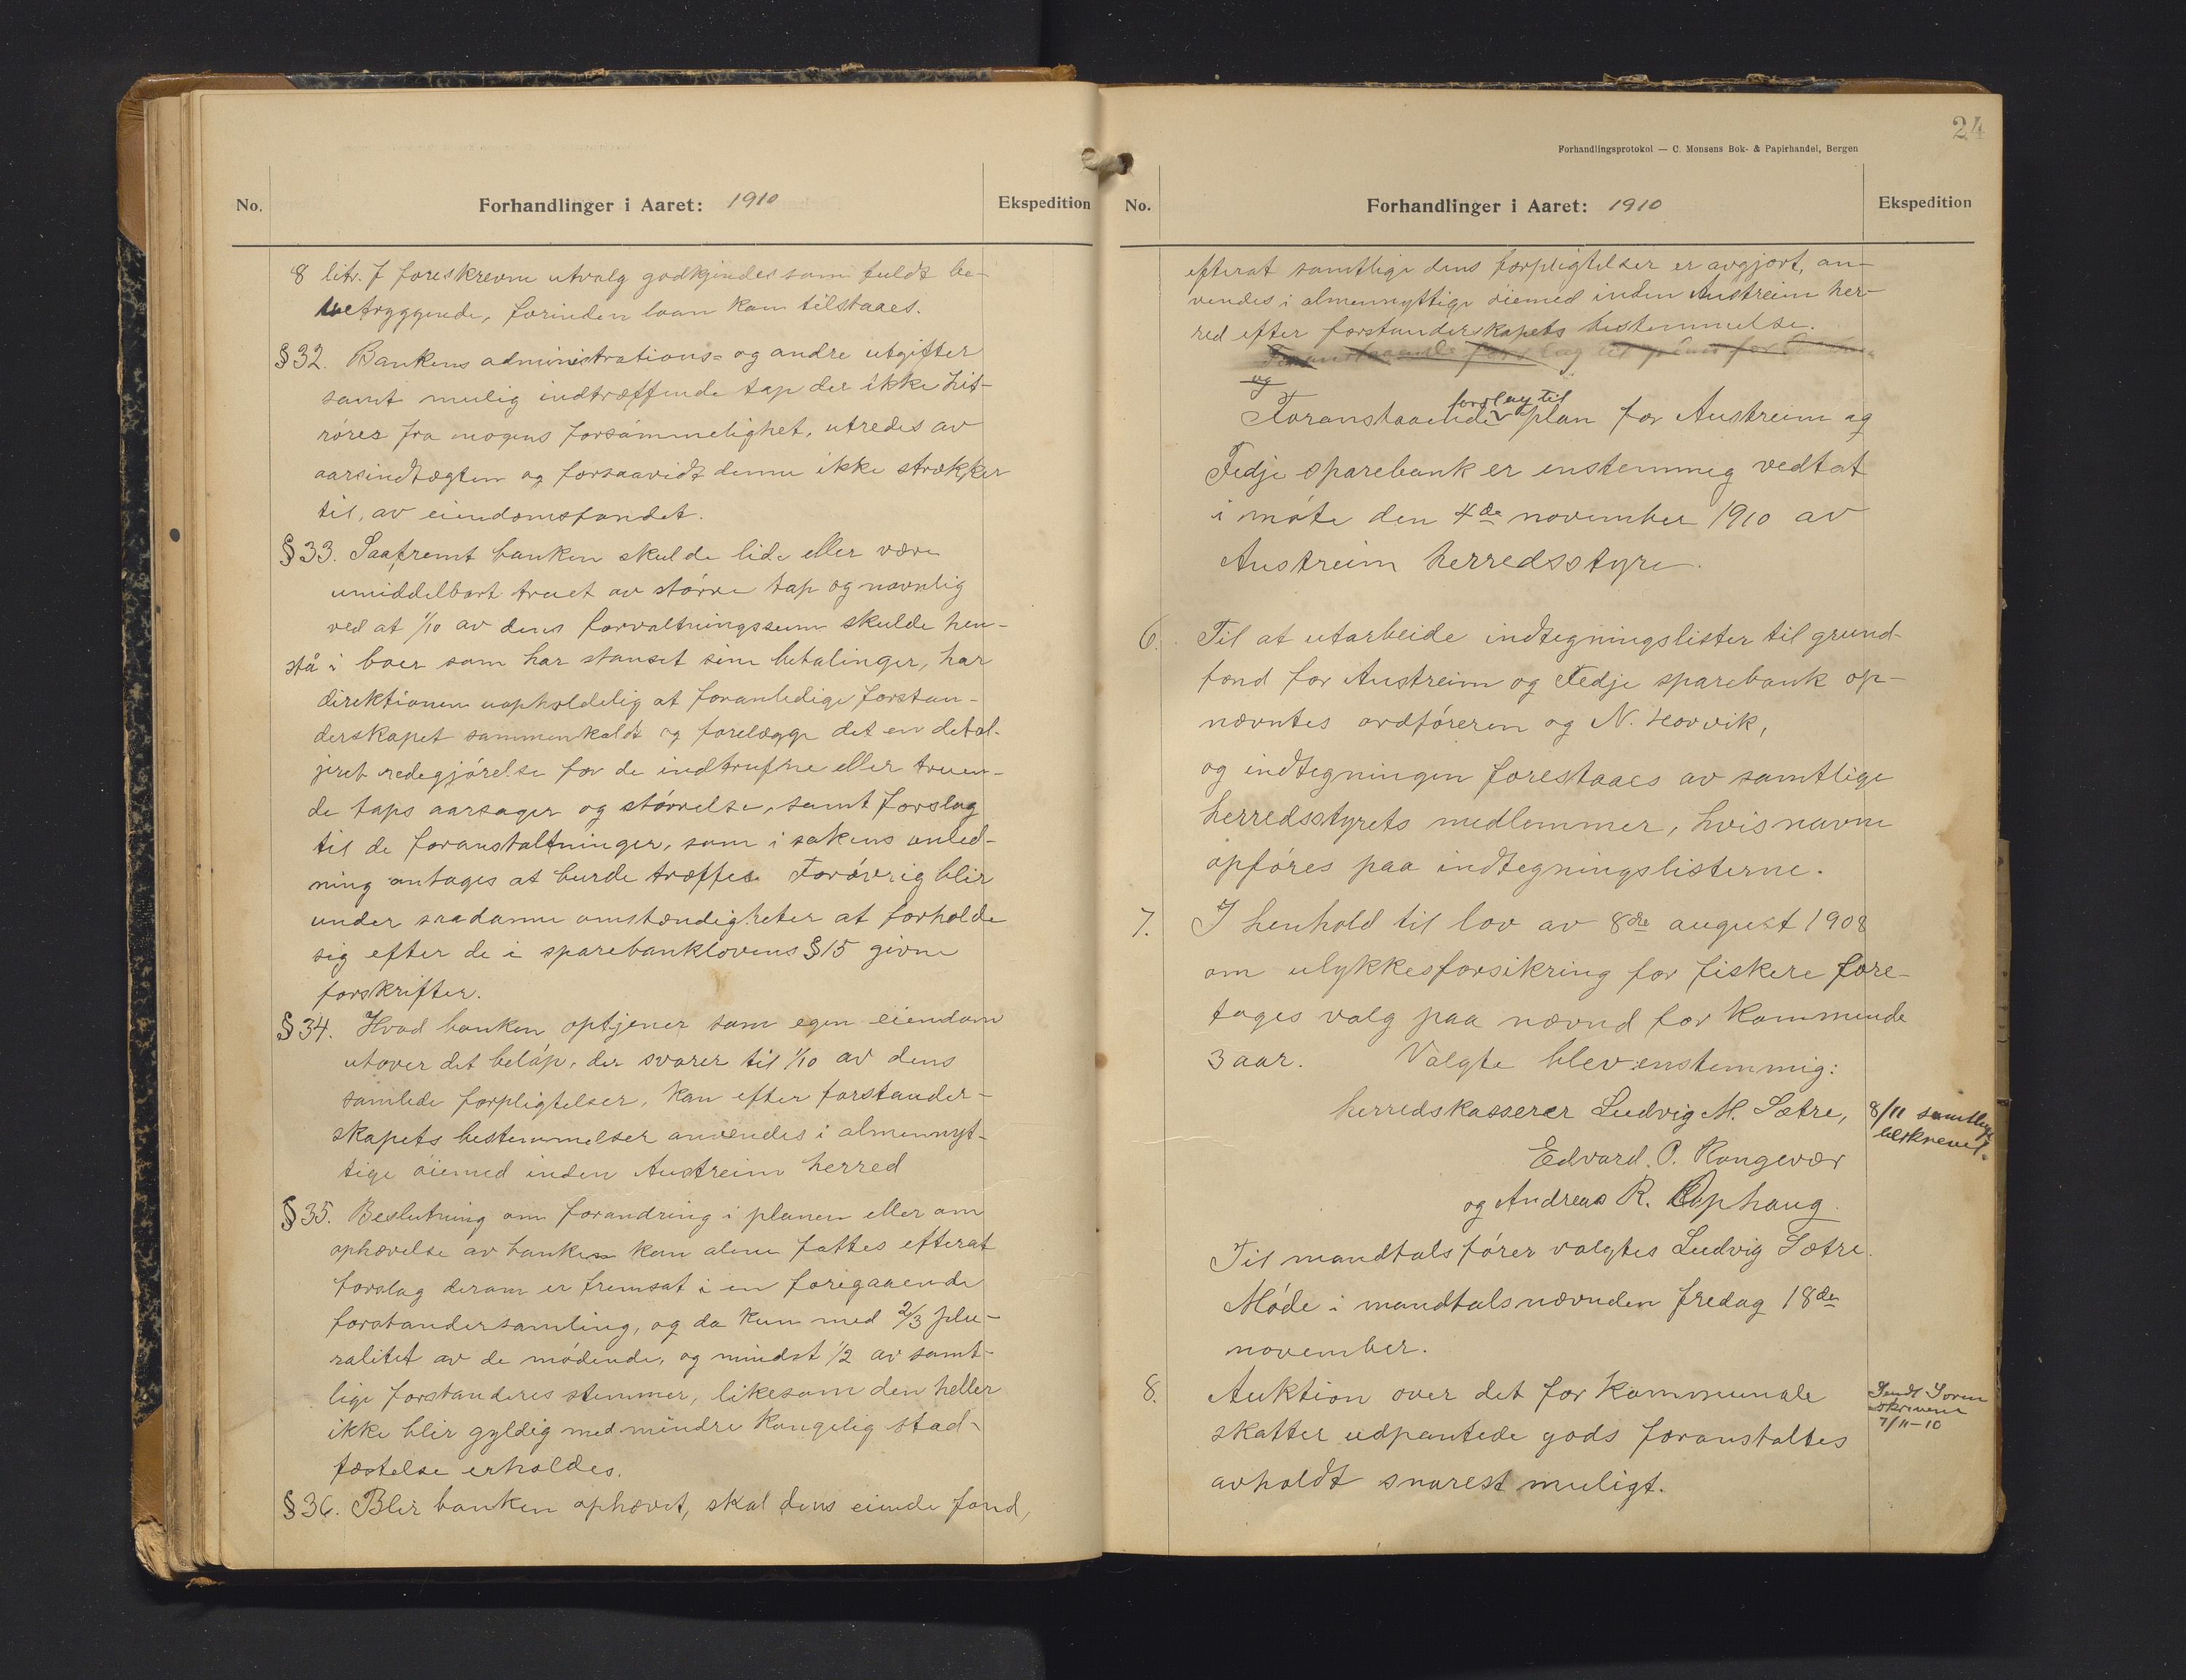 No.
Forhandlinger i Aaret: 1910
Ekspedition
8 litr. f foreskrevne utvalg godkjendes som fuldt be-
betryggende, forinden laan kan tilstaaes.
§ 32. Bankens administrations= og andre utgifter
samt mulig indtræffende tap der ikke hit-
rører fra nogens forsømmelighet, utredes av
aarsindtægten og forsaavidt denne ikke strækker
til, av eiendomsfondet.
§ 33. Saafremt banken skulde lide eller være
umiddelbart truet av større tap og navnlig
ved at 1/10 av dens forvaltningssum skulde hen-
stå i boer som har stanset sine betalinger, har
direktionen uopholdelig at foranledige forstan-
derskapet sammenkaldt og forelægge det en detal-
jeret redegjørelse for de indtrufne eller truen-
de taps aarsager og størrelse, samt forslag
til de foranstaltninger, som i sakens anled-
ning antages at burde træffes. Forøvrig blir
under saadanne omstændigheter at forholde
sig efter de i sparebanklovens § 15 givne
forskrifter.
§ 34. Hvad banken optjener som egen eiendom
utover det beløp, der svarer til 1/10 av dens
samlede forpligtelser, kan efter forstander-
skapets bestemmelser anvendes i almennyt-
tige øiemed inden Austreim herred
§ 35. Beslutning om forandring i planen eller om
ophævelse av banken kan alene fattes efterat
forslag derom er fremsat i en foregaaende
forstandersamling, og da kun med 2/3 plu-
ralitet av de mødende, og mindst 1/2 av samt-
lige forstanderes stemmer, likesom den heller
ikke blir gyldig med mindre kongelig stad-
fæstelse erholdes.
§ 36. Blir banken ophævet, skal dens eiende fond,
24
Forhandlingsprotokol — C. Monsens Bok- & Papirhandel, Bergen
No.
Forhandlinger i Aaret: 1910
Ekspedition
efterat samtlige dens forpligtelser er avgjort, an-
vendes i almennyttige øiemed inden Austreim her-
red efter forstanderskapets bestemmelse.
Foranstaaende forslag til plan for
og
forslag til
Foranstaaende plan for Austreim og
Fedje sparebank er enstemmig vedtat
i møte den 4de november 1910 av
Austreim herredsstyre.
6. Til at utarbeide indtegningslister til grund-
fond for Austreim og Fedje sparebank op-
nævntes ordføreren og N. Hovvik,
og indtegningen forestaaes av samtlige
herredsstyrets medlemmer, hvis navne
opføres paa indtegningslisterne.
7. I henhold til lov av 8de august 1908
om ulykkesforsikring for fiskere fore-
tages valg paa nævnd for kommende
3 aar. Valgte blev enstemmig:
herredskasserer Ludvig M. Sætre,
8/11 samtlige
tilskrevet.
Edvard P. Rongevær
og Andreas R. Ophaug.
Til mandtalsfører valgtes Ludvig Sætre.
Møde i mandtalsnævnden fredag 18de
november.
8. Auktion over det for kommunale
skatter udpantede gods foranstaltes
avholdt snarest muligt.
Sendt Soren
skriveren
7/11-10